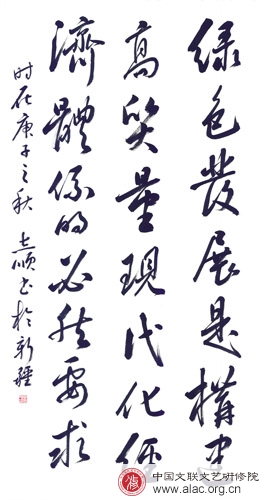 绿色發展是構建
高質量現代化經
濟體係的必然要求
时在庚子之秋 志顺书於新疆
中国文联文艺研修院
www.alac.org.cn